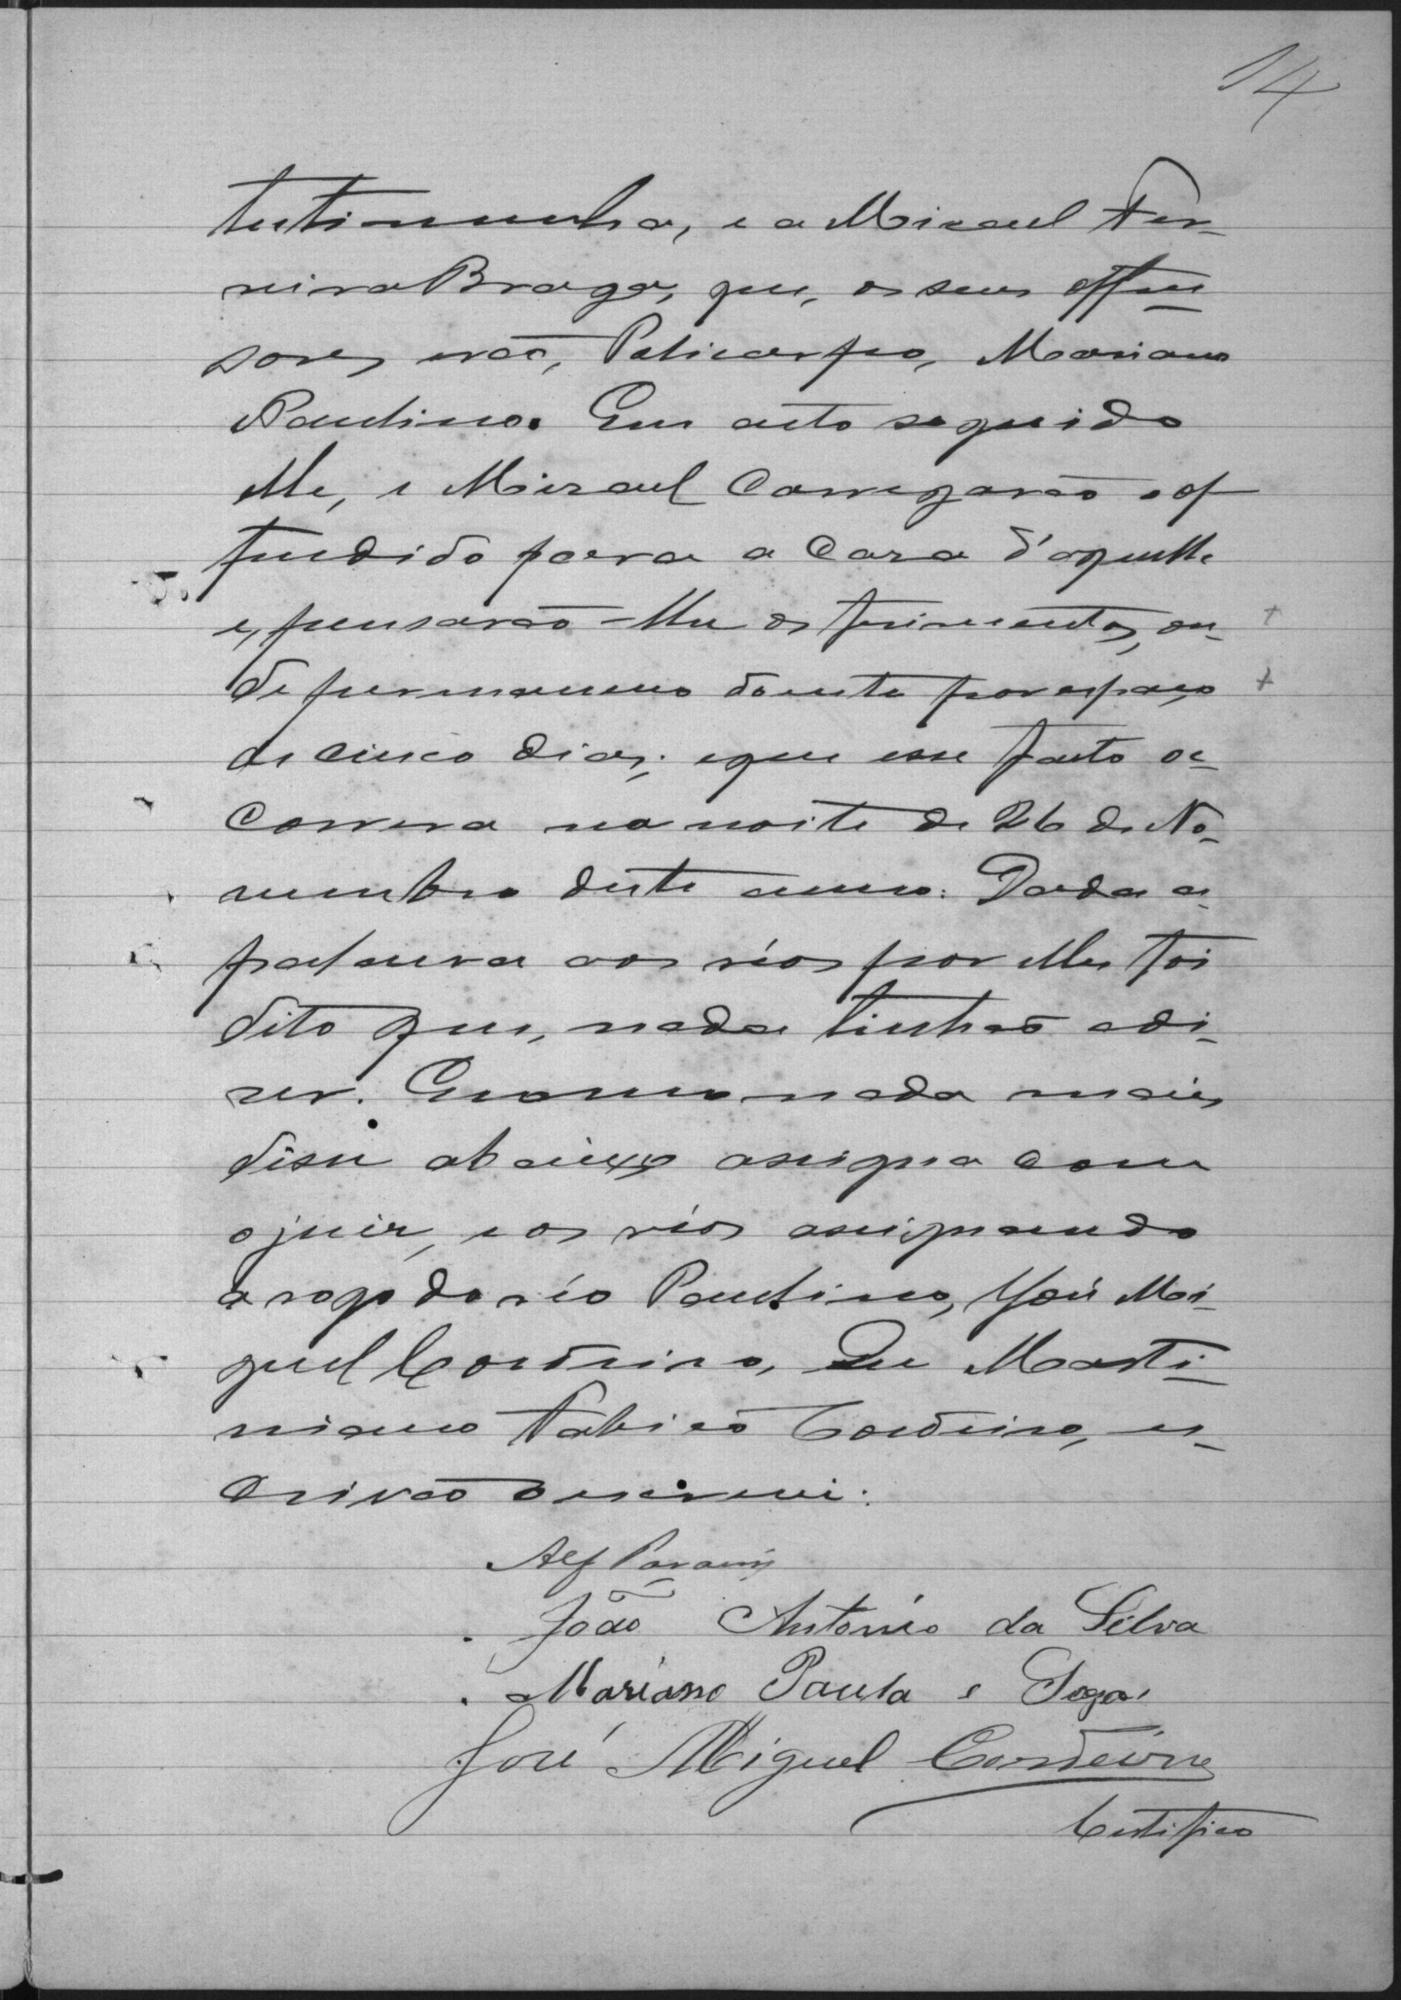 14
testimunha, e a Mizael Fer-
reira Braga, que, os seus offen-
sores erão, Policarpo, Mariano
Paulino. Em acto seguido
elle, e Mizael carregarão o of-
fendido para a casa d'aquelle
e, pensarão-lhe os ferimentos, on-
de permaneceo doente por espaço
de cinco dias; e que esse facto oc-
correra na noite de 26 de No-
vembro deste anno. Dada a
palavra aos réos por elles foi
dito que, nada tinhão a di-
zer. E como nada mais
disse abaixo assigna com
o juiz, e os réos assignando
a rogo do réo Paulino, José Mi-
guel Cordeiro, Eu Marti-
niano Fabião Cordeiro, es-
crivão o escrevi.
João Antonio da Silva
Mariano Paula e
José Miguel Cordeiro
Certifico